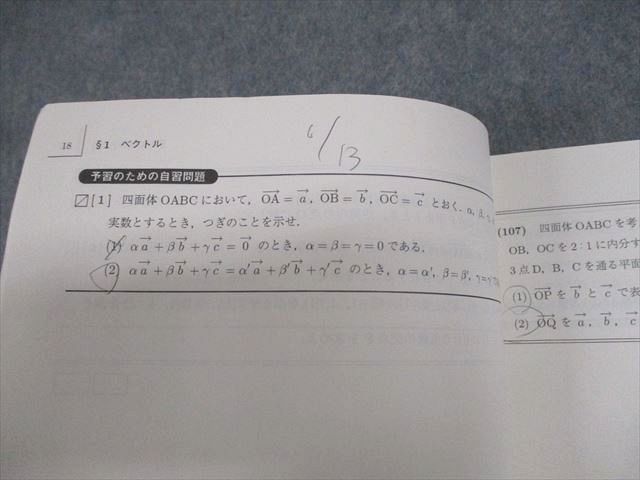 18 §1 ベクトル
6/13
予習のための自習問題
[1] 四面体 OABC において，$\overrightarrow{OA}=\vec{a}$，$\overrightarrow{OB}=\vec{b}$，$\overrightarrow{OC}=\vec{c}$ とおく．α, β,
実数とするとき，つぎのことを示せ．
(1) $α\vec{a}+β\vec{b}+γ\vec{c}=\vec{0}$ のとき，α＝β＝γ＝0である．
(2) $α\vec{a}+β\vec{b}+γ\vec{c}=α'\vec{a}+β'\vec{b}+γ'\vec{c}$ のとき，α＝α'，β＝β'，γ＝γ'
(107) 四面体 OABC を考
OB，OC を 2：1 に内分す
3点 D，B，C を通る平面
(1) $\overrightarrow{OP}$ を $\vec{b}$ と $\vec{c}$ で表
(2) $\overrightarrow{OQ}$ を $\vec{a}$，$\vec{b}$，$\vec{c}$